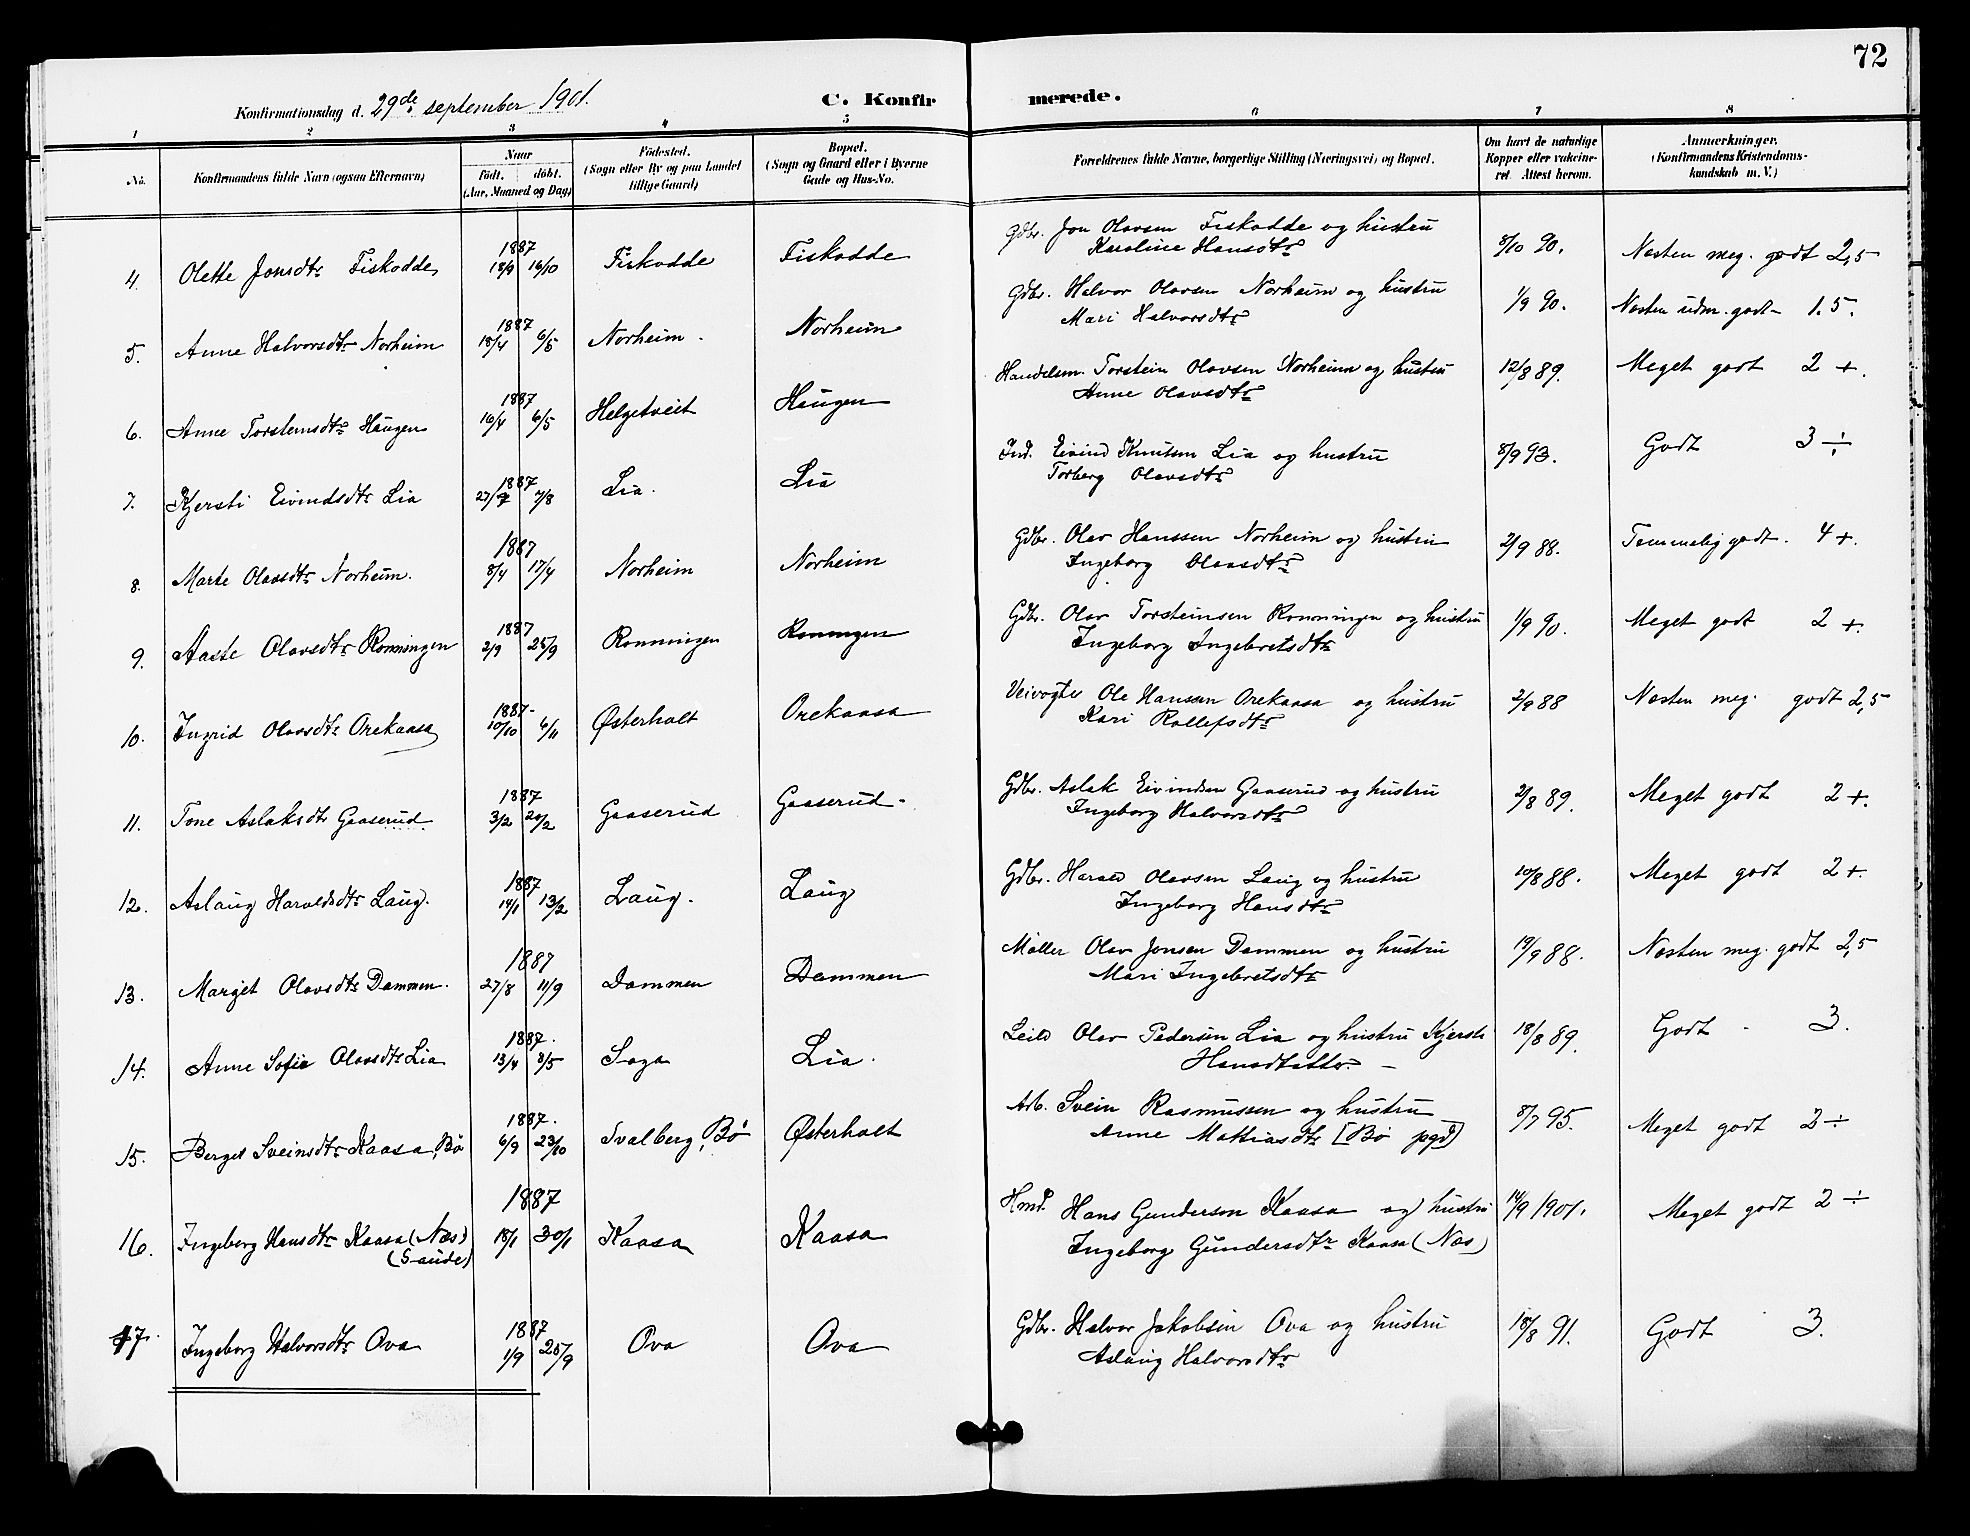 72
Konfirmationsdag d. 29de september 1901.
C. Konfirmerede.
1 2 3 4 5 6 7 8
No. Konfirmandens fulde Navn (ogsaa Efternavn) Naar født. døbt. (Aar, Maaned og Dag)
Fødested. (Sogn eller By og paa Landet tillige Gaard)
Bopæl. (Sogn og Gaard eller i Byerne Gade og Hus-No.
Forældrenes fulde Navne, borgerlige Stilling (Næringsvei) og Bopæl.
Om havt de naturlige Kopper eller vakcineret. Attest herom.
Anmerkninger. (Konfirmandens Kristendomskundskab m. V.)
4. Olette Jonsdtr Fiskodde 1887 18/9 16/10 Fiskodde Fiskodde Gdbr. Jon Olavsen Fiskodde og hustru
Karoline Hansdtr 8/10 90. Næsten meg. godt 2,5
5. Anne Halvorsdtr Norheim 1887 18/4 6/5 Norheim. Norheim Gdbr. Halvor Olavsen Norheim og hustru
Mari Halvorsdtr 1/9 90. Næsten udm. godt 1.5.
6. Anne Torsteinsdtr Haugen 1887 16/4 6/5 Helgetveit Haugen Handelsm. Torstein Olavsen Norheim og hustru
Anne Olavsdtr 12/8 89. Meget godt 2 +.
7. Kjersti Eivindsdtr Lia 1887 27/7 7/8 Lia. Lia Ind. Eivind Knutsen Lia og hustru
Torberg Olavsdtr 8/9 93. Godt 3 ÷
8. Marte Olavsdtr Norheim. 1887 8/4 17/4 Norheim Norheim Gdbr. Olav Hanssen Norheim og hustru
Ingeborg Olavsdtr 2/9 88. Temmelig godt. 4 +.
9. Aaste Olavsdtr Rønningen 1887 2/9 25/9 Rønningen Rønningen Gdbr. Olav Torsteinsen Rønningen og hustru
Ingeborg Ingebretsdtr 1/9 90. Meget godt 2 +.
10. Ingrid Olavsdtr Orekaasa 1887 10/10 6/11 Østerholt Orekaasa Veivogter Ole Hanssen Orekaasa og hustru
Kari Rollefsdtr 2/9 88 Næsten meg. godt 2,5
11. Tone Aslaksdtr Gaaserud 1887 3/2 20/2 Gaaserud Gaaserud. Gdbr. Aslak Eivindsen Gaaserud og hustru
Ingeborg Halvorsdtr 2/8 89. Meget godt 2 +.
12. Aslaug Haraldsdtr Laug. 1887 14/1 13/2 Laug. Laug Gdbr. Harald Olavsen Laug og hustru
Ingeborg Hansdtr 10/8 88. Meget godt 2 +.
13. Margit Olavsdtr Dammen. 1887 27/8 11/9 Dammen Dammen Møller Olav Jonsen Dammen og hustru
Mari Ingebretsdtr 19/9 88. Næsten meg. godt 2,5
14. Anne Sofie Olavsdtr Lia 1887. 13/4 8/5 Saga Lia. Leild Olav Pedersen Lia og hustru Kjersti
Hansdtatter. 18/8 89. Godt 3.
15. Berget Sveinsdtr Kaasa, Bø 1887. 6/9 23/10 Svalberg, Bø Østerholt Arb. Svein Rasmussen og hustru
Anne Mattiasdtr [Bø pgd] 8/7 95. Meget godt 2 ÷
16. Ingeborg Hansdtr Kaasa (Næs)
(Saude) 1887 18/1 30/1 Kaasa Kaasa Hmd. Hans Gunderson Kaasa og hustru
Ingeborg Gundersdtr Kaasa (Næs) 14/9 1901. Meget godt 2 ÷
17. Ingeborg Halvorsdtr Ova 1887 1/9 25/9 Ova Ova Gdbr. Halvor Jakobsen Ova og hustru
Aslaug Halvorsdtr 18/8 91. Godt 3.